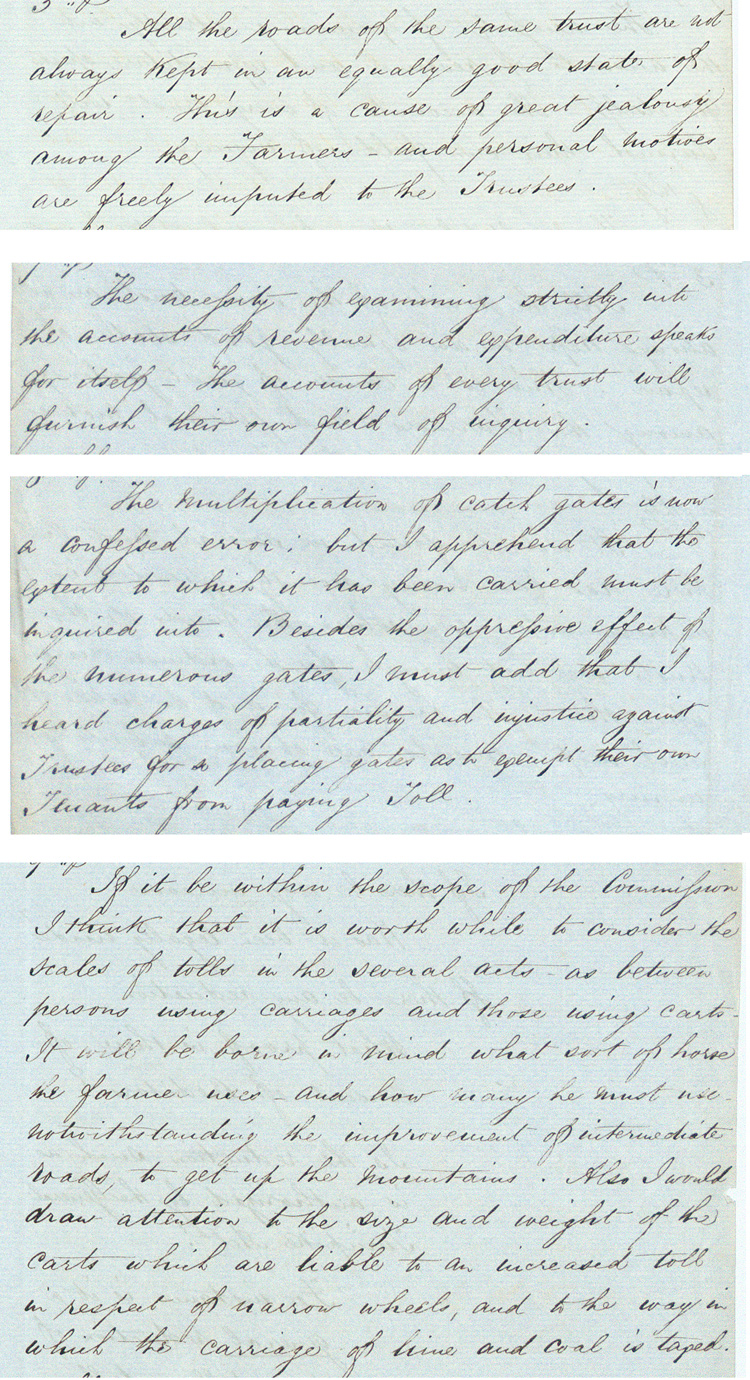 All the roads of the same trust are not
always kept in an equally good state of
repair. This is a cause of great jealousy
among the Farmers - and personal motives
are freely imputed to the Trustees.
The necessity of examining strictly into
the accounts of revenue and expenditure speaks
for itself - The accounts of every trust will
furnish their own field of inquiry.
The multiplication of catch gates is now
a confessed error; but I apprehend that the
extent to which it has been carried must be
inquired into. Besides the oppressive effect of
the numerous gates, I must add that I
heard charges of partiality and injustice against
Trustees for so placing gates as to exempt their own
Tenants from paying Toll.
If it be within the scope of the Commission
I think that it is worth while to consider the
scales of tolls in the several acts - as between
persons using carriages and those using carts -
It will be borne in mind what sort of horse
the farmer uses - and how many he must use -
notwithstanding the improvement of intermediate
roads, to get up the mountains. Also I would
draw attention to the size and weight of the
carts which are liable to an increased toll
in respect of narrow wheels, and to the way in
which the carriage of lime and coal is taxed.